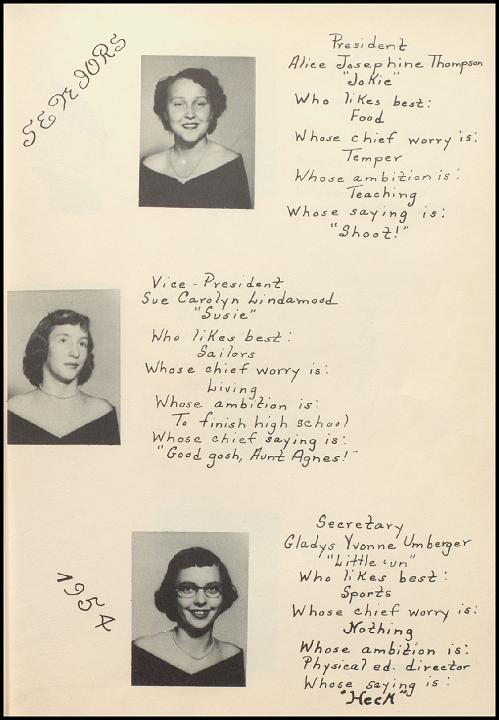 SENIORS
President
Alice Josephine Thompson
"Jokie"
Who likes best:
Food
Whose chief worry is:
Temper
Whose ambition is:
Teaching
Whose saying is:
"Shoot!"
Vice-President
Sue Carolyn Lindamood
"Susie"
Who likes best:
Sailors
Whose chief worry is:
Living
Whose ambition is:
To finish high school
Whose chief saying is:
"Good gosh, Aunt Agnes!"
1954
Secretary
Gladys Yvonne Umberger
"Little 'un"
Who likes best:
Sports
Whose chief worry is:
Nothing
Whose ambition is:
Physical ed. director
Whose saying is:
"Heck"